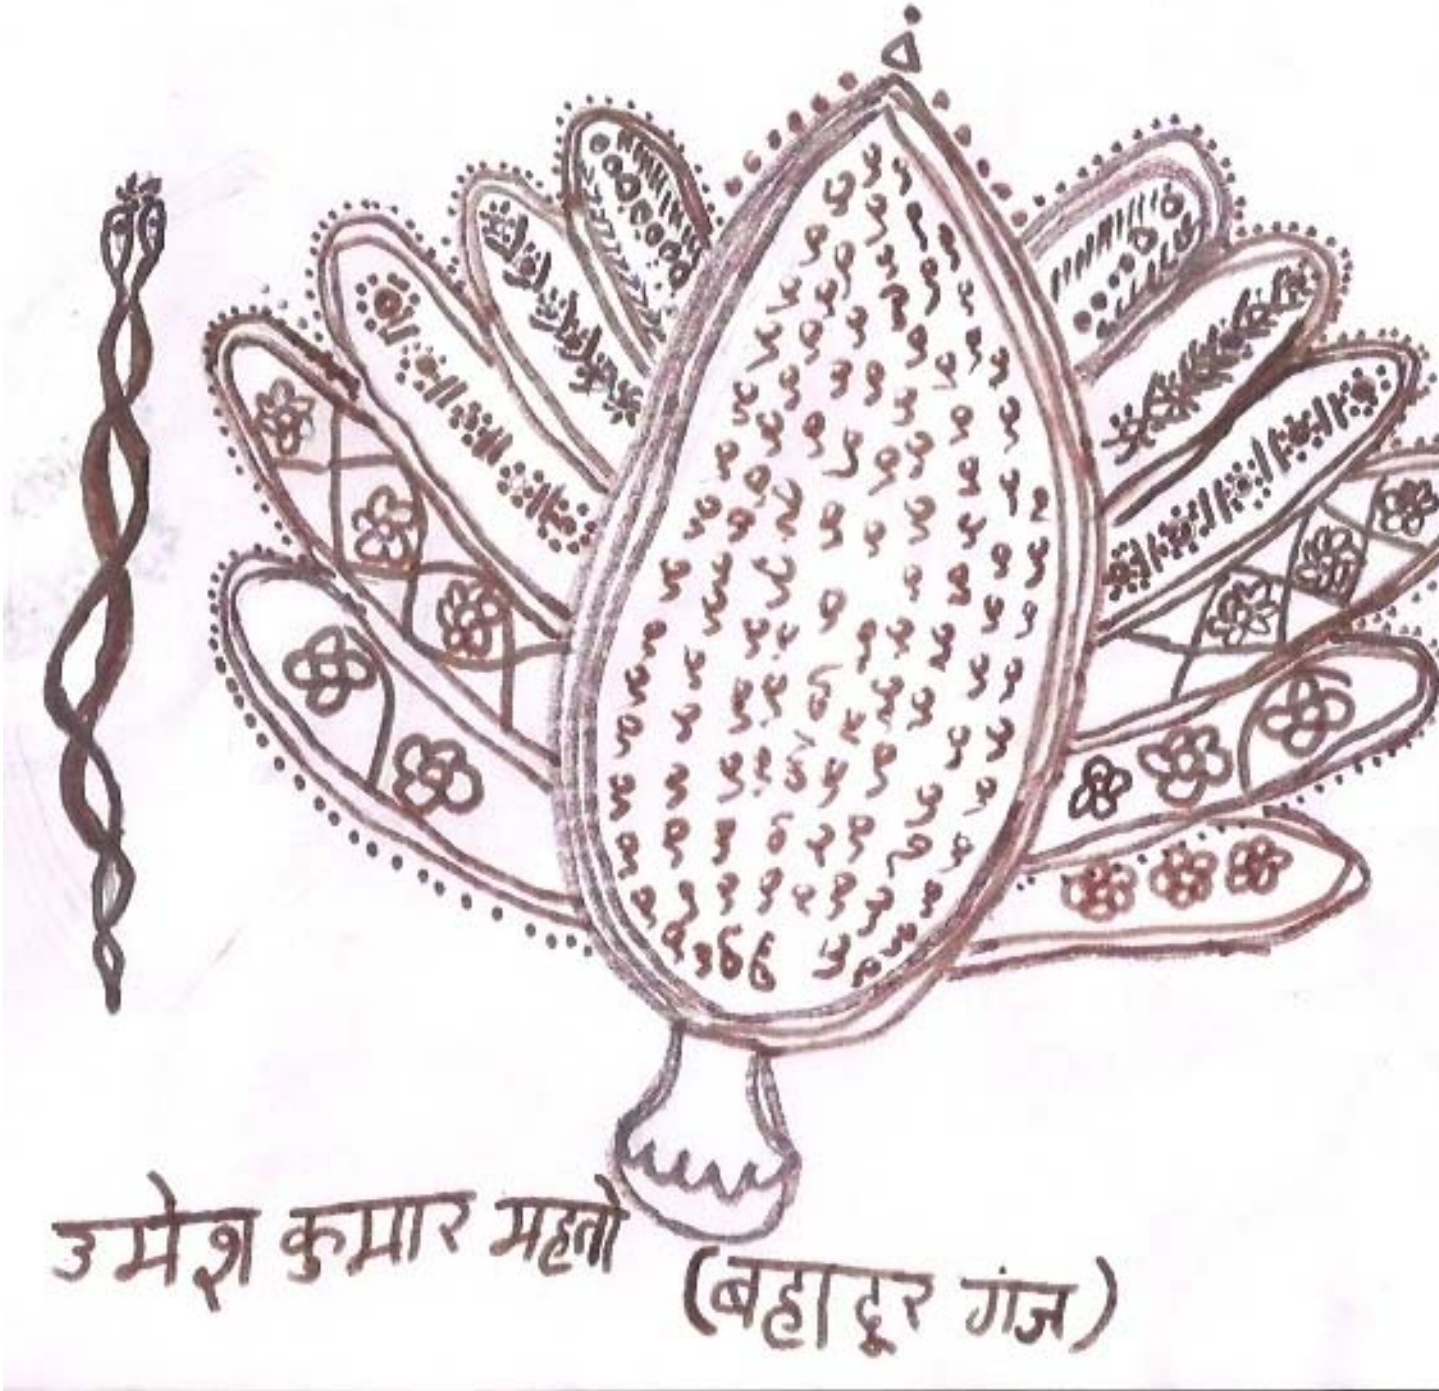 उमेश कुमार महतो
(बहादूर गंज)